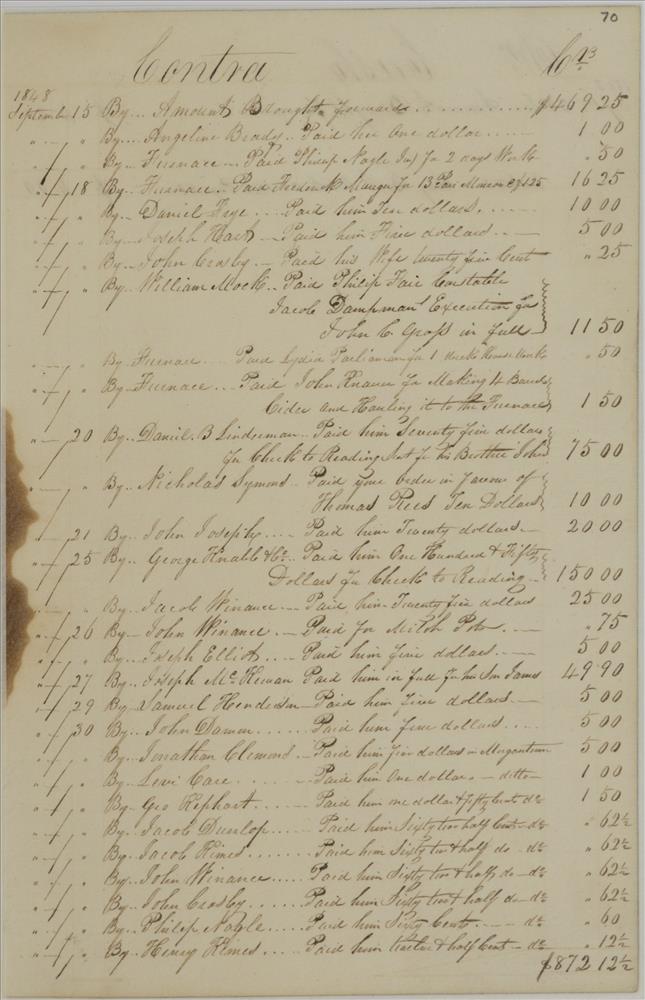 70
Contra Crs
1848
September 15 By... Amount Brought forward ............ $469 25
" " By... Angeline Brady.. Paid her One dollar ..... 1 00
" " By... Furnace... Paid Philip Nagle Jnr for 2 days Work " 50
" 18 By.. Furnace.. Paid Frederick Mauger for 13 Pair @ $1.25 16 25
" " By... Daniel .... Paid him Ten dollars ..... 10 00
" " By... Joseph Hart ... Paid him Five dollars ... 5 00
" " By... John Crosby... Paid his Wife twenty five Cent " 25
" " By... William Mock.. Paid Philip Fair Constable
Jacob Dampman's Execution for
John C. Gross in full 11 50
" " By.. Furnace .... Paid Lydia for 1 Weeks House Work " 50
" " By.. Furnace ... Paid John Knauer for Making 4 Barrels
Cider and Hauling it to the Furnace 1 50
" 20 By.. Daniel B Linderman.. Paid him Seventy five dollars
for Check to Reading for his Brother John 75 00
" " By.. Nicholas Symons.. Paid your order in favour of
Thomas Rees Ten Dollars 10 00
" 21 By.. John Joseph .... Paid him Twenty dollars.. 20 00
" 25 By.. George Knabb & Co.. Paid him One Hundred & Fifty
Dollars for Check to Reading 150 00
" " By.. Jacob Winance ... Paid him Twenty five dollars 25 00
" 26 By... John Winance ... Paid for Milch .... " 75
" " By... Joseph Elliot .... Paid him five dollars .... 5 00
" 27 By... Joseph McKewan Paid him in full for his Son James 49 90
" 29 By... Samuel Henderson... Paid him five dollars ... 5 00
" 30 By.. John Damm ...... Paid him five dollars .... 5 00
" " By.. Jonathan Clemons.. Paid him five dollars in Morgantown 5 00
" " By.. Levi Care ...... Paid him One dollar ... ditto 1 00
" " By.. Geo Rephart .... Paid him one dollar & fifty Cents do 1 50
" " By.. Jacob Dunlop ..... Paid him Sixty two half Cent do " 62½
" " By.. Jacob Himes ....... Paid him Sixty two & half do do " 62½
" " By.. John Winance ..... Paid him Sixty two & half do do " 62½
" " By.. John Crosby ...... Paid him Sixty two & half do do " 62½
" " By.. Philip Nagle ..... Paid him Sixty Cents .... do " 60
" " By.. Henry Himes .... Paid him twelve & half Cent do " 12½
$872 12½